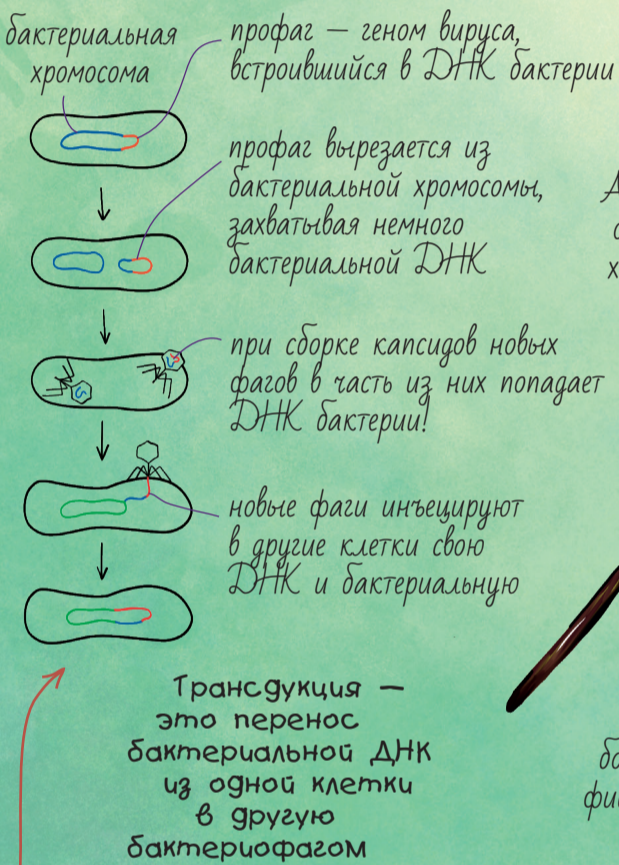 бактериальная
хромосома
профаг — геном вируса,
встроившийся в ДНК бактерии
профаг вырезается из
бактериальной хромосомы,
захватывая немного
бактериальной ДНК
при сборке капсидов новых
фагов в часть из них попадает
ДНК бактерии!
новые фаги инъецируют
в другие клетки свою
ДНК и бактериальную
Трансдукция —
это перенос
бактериальной ДНК
из одной клетки
в другую
бактериофагом